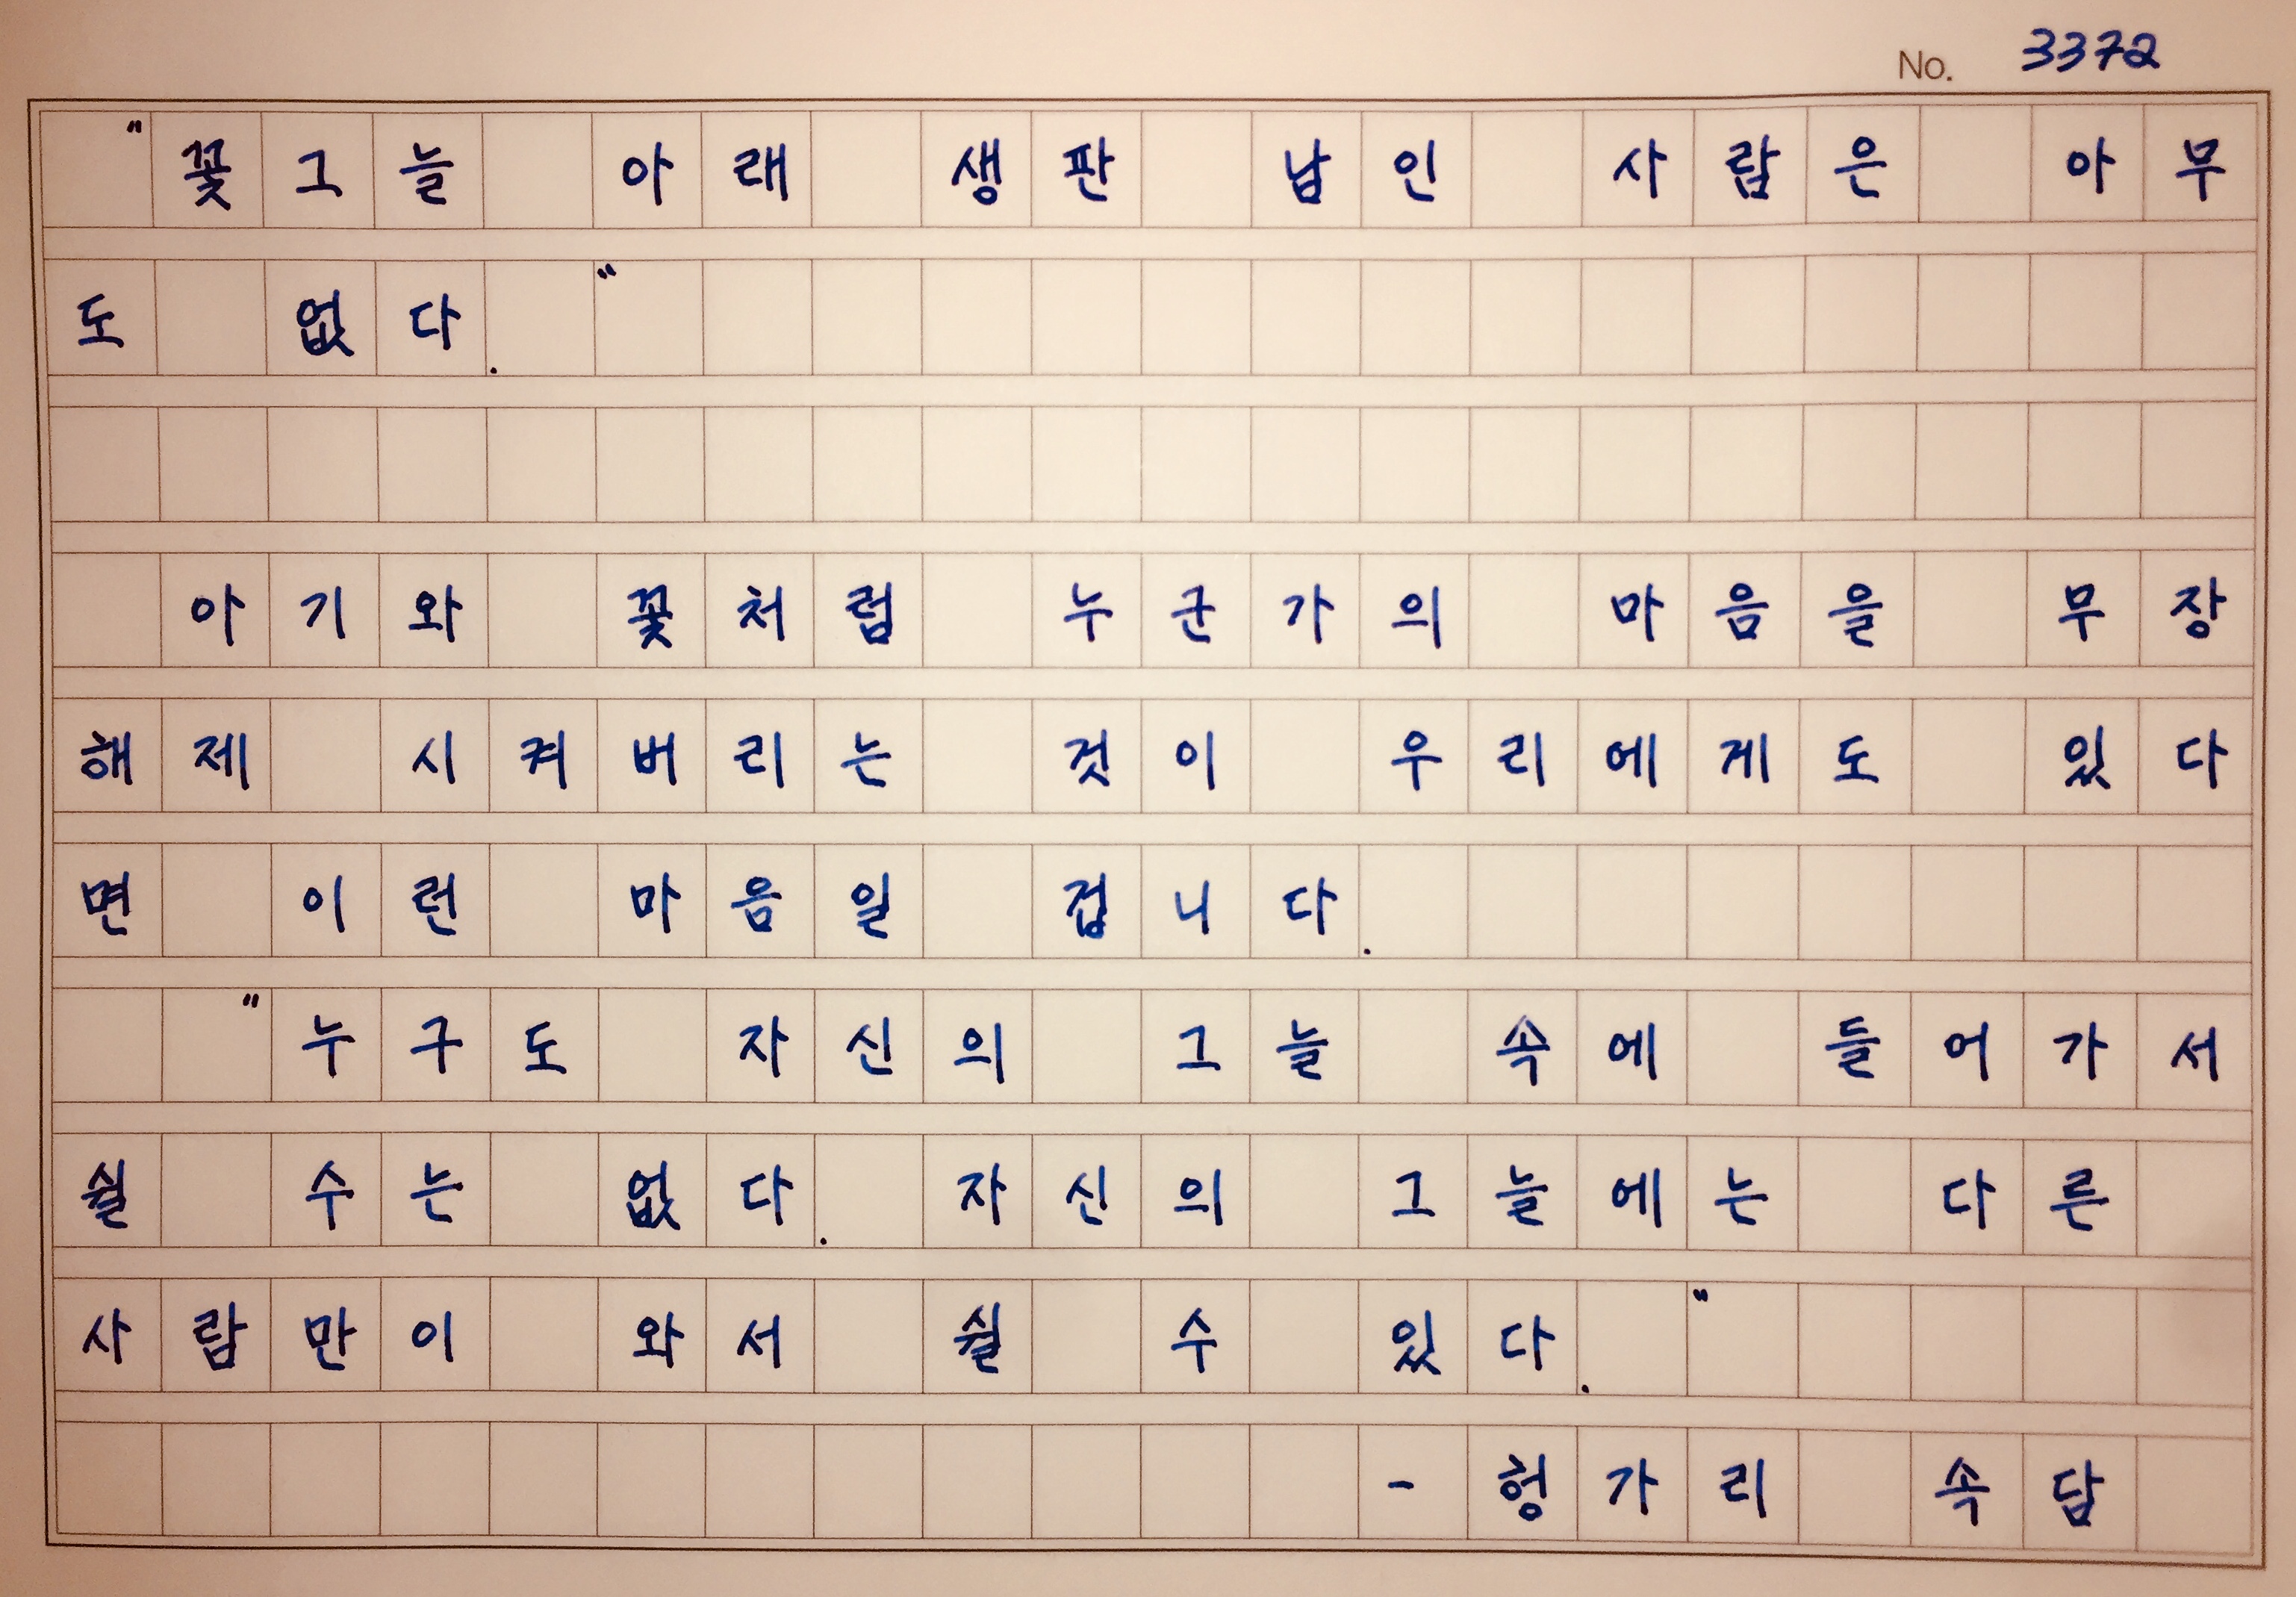 No. 3372
"꽃그늘 아래 생판 남인 사람은 아무
도 없다."
아기와 꽃처럼 누군가의 마음을 무장
해제 시켜버리는 것이 우리에게도 있다
면 이런 마음일 겁니다.
"누구도 자신의 그늘 속에 들어가서
쉴 수는 없다. 자신의 그늘에는 다른
사람만이 와서 쉴 수 있다."
- 헝가리 속담